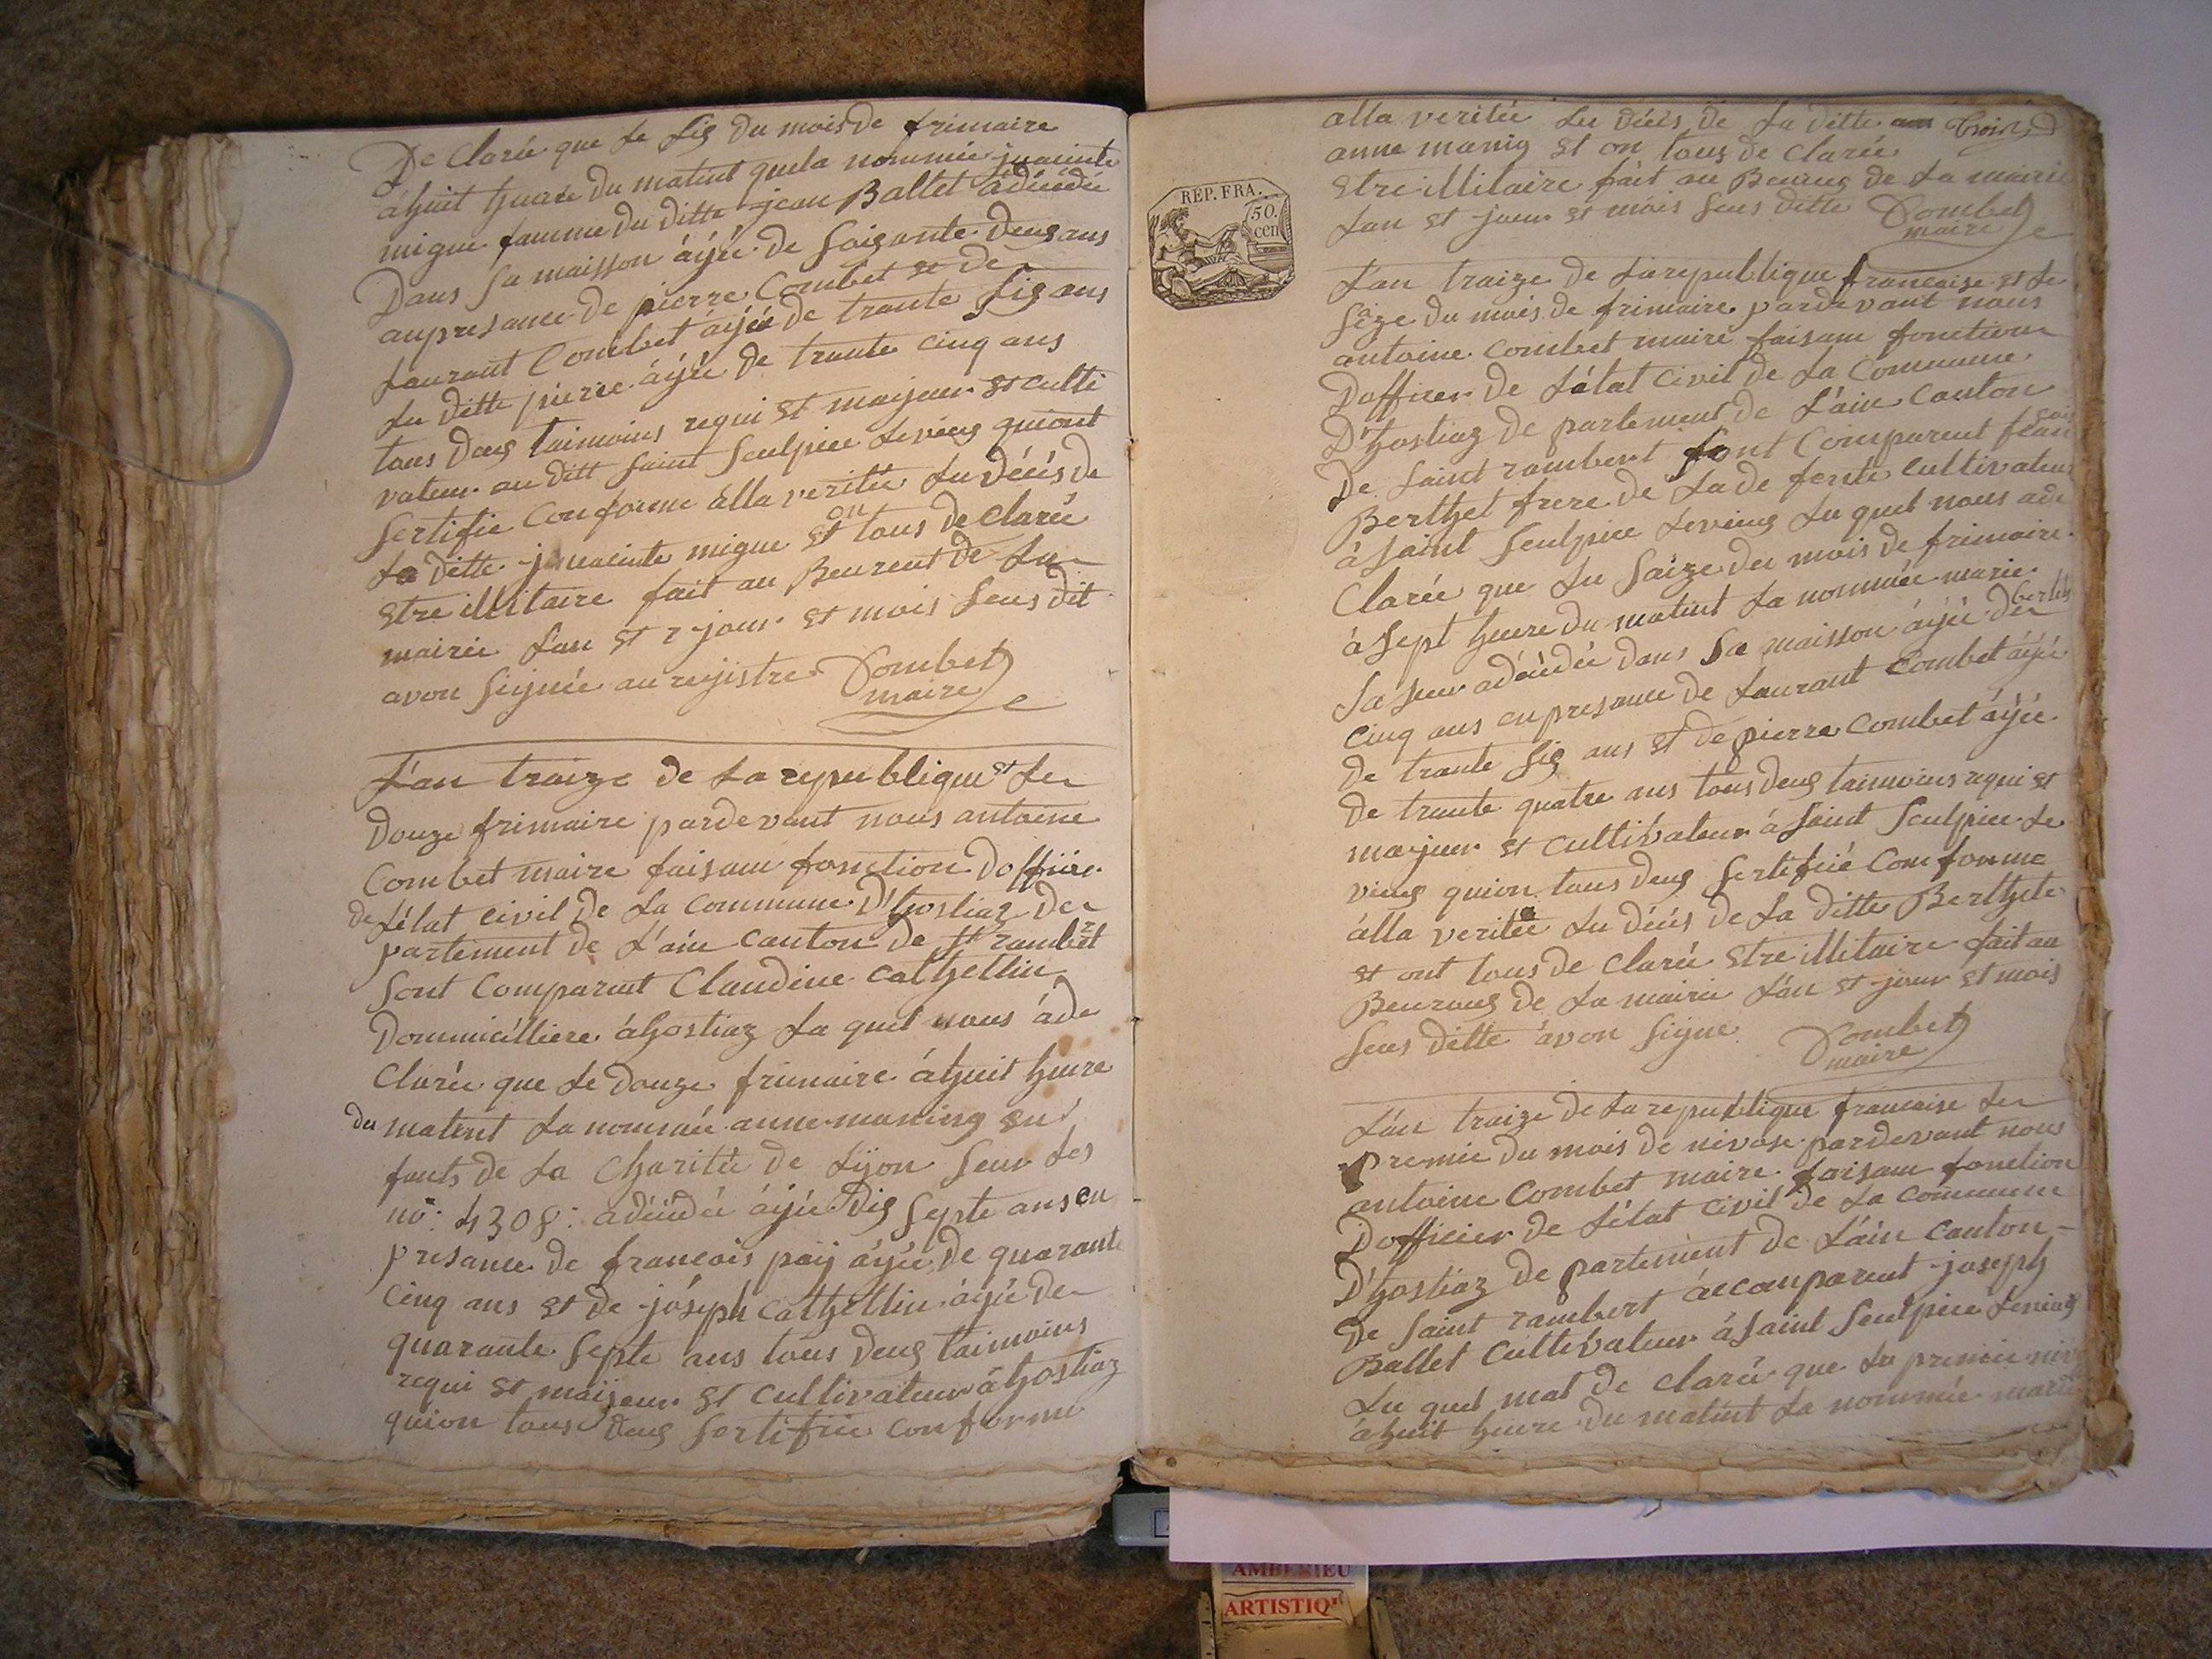 De Clarée que Le Sig du mois de frimaire
à huit heure du matint quela nommée jacinte
migue famme du ditte jean Ballet adécédée
Dans sa maisson âjée de soisante deug ans
aupresance de pierre Combet et de
Laurant Combet âjée de trante Sig ans
Lu ditte pierre âjée de trante cinq ans
tous deug taimoins requi et majeur et culti
vateur au ditt saint Seulpice Levieug quiont
Sertifie Conforme alla veritée Lu décés de
La ditte jacinte migue et on tous de Clarée
etre illitaire fait au Beureut de La
mairie L'an et jour et mois Seus dit
avon Seignée au rejistre Combet
maire
L'an traize de La republique et Le
Douze frimaire pardevant nous antoine
Combet maire faisam fonction Dofficier
de L'état civil de La Commune D'hostiaz De
partement de L'ain canton de St rambert
Sont Comparut Claudine Cathellin
Dommicilliere à hostiaz La quel nous à de
Clarée que Le Douze frimaire à huit heure
du matint La nommée anne maning en
fants de La Charitée de Lÿon Seur Les
no: 4308: adécédée âjée Dig Septe ans en
presance de francois paÿ âjée de quarante
Cinq ans et de joseph Cathellin âjée de
quarante Septe ans tous Deug taimoins
requi et maijeur et Cultivateur à hostiaz
quion tous Deug Sertifiée Conforme
alla veritée Lu décés de La ditte
anne manig et on tous de Clarée
etre illitaire fait au Beureug de La mairie
L'an et jour et mois Seus ditte Combet
maire
RÉP. FRA.
50.
cen
L'an traize de La republique francaise et Le
Saize du mois de frimaire pardevant nous
antoine Combet maire faisam fonction
Dofficer de L'état Civil de La Commune
D'hostiaz De partement de L'ain Canton
De Saint rambert Sont Comparut
Berthet frere de La de fente Cultivateur
à Saint Seulpice Levieug Lu quel nous a de
Clarée que Lu Saize du mois de frimaire
à Sept heure du matint La nommée marie
Sa seur adécédée dans Sa maisson âjée de
Cinq ans en presance de Laurant Combet âjée
De trante Sig ans et de pierre Combet âjée
De trante quatre ans tous Deug taimoins requi et
majeur et Cultivateur à Saint Seulpice Le
vieug quion tous deug Sertifiée Comforme
alla veritée Lu décés de La ditte Berthete
et ont tous de Clarée etre illitaire fait au
Beuraug de La mairie L'an et jour et mois
Seus ditte avon Signe Combet
maire
L'an traize de La republique francaise Le
Premie du mois de nivose pardevant nous
antoine Combet maire faisam fonction
Dofficier de L'état Civil de La Commune
D'hostiaz De partement de L'ain Canton
De Saint rambert àccomparent joseph
Ballet Cultivateur à Saint Seulpice Levieug
Lu quel mat de clarée que Lu premiee
à huit heure du matint La nommée
AMBERIEU
ARTISTIQ